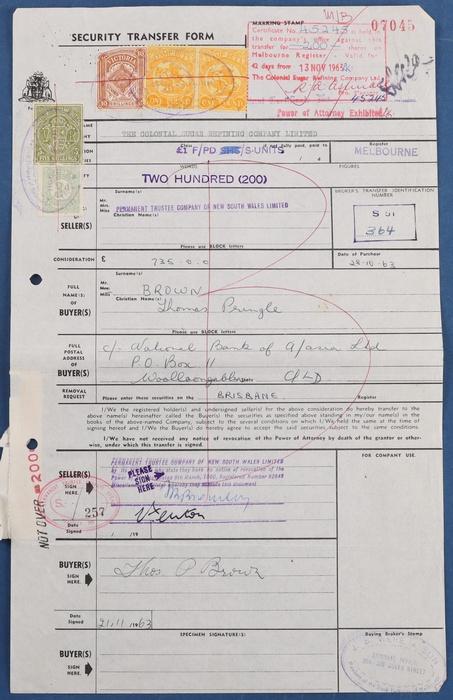 M/B
SECURITY TRANSFER FORM
MARKING STAMP
07045
Certificate No. 45243 is held
the company's office against this
transfer for 200 shares on
Melbourne Register. Valid for
42 days from 13 NOV 1963
The Colonial Sugar Refining Company Ltd.
45243
Power of Attorney Exhibited
VICTORIA
THE COLONIAL SUGAR REFINING COMPANY LIMITED
£1 F/PD S-UNITS
Register
MELBOURNE
TWO HUNDRED (200)
FIGURES
Surname/s:
Mr.
Mrs.
Miss
Christian Name(s)
PERMANENT TRUSTEE COMPANY OF NEW SOUTH WALES LIMITED
BROKER'S TRANSFER IDENTIFICATION
NUMBER
S 01
364
SELLER(S)
Please use BLOCK letters
CONSIDERATION £ 735.0.0
Date of Purchase
28.10.63
FULL
NAME(S)
OF
BUYER(S)
Surname/s:
BROWN
Christian Name(s)
Thomas Pringle
Please use BLOCK letters
FULL
POSTAL
ADDRESS
OF
BUYER(S)
c/- National Bank of A/asia Ltd
P.O. Box 11
Woolloongabba QLD
REMOVAL
REQUEST
Please enter these securities on the BRISBANE Register
I/We the registered holder(s) and undersigned seller(s) for the above consideration do hereby transfer to the
above name(s) hereinafter called the Buyer(s) the securities as specified above standing in my/our name(s) in the
books of the above-named Company, subject to the several conditions on which I/We held the same at the time of
signing hereof and I/We the Buyer(s) do hereby agree to accept the said securities subject to the same conditions.
I/We have not received any notice of revocation of the Power of Attorney by death of the grantor or other-
wise, under which this transfer is signed.
SELLER(S)
SIGN
HERE.
PERMANENT TRUSTEE COMPANY OF NEW SOUTH WALES LIMITED
PLEASE
SIGN
HERE
FOR COMPANY USE.
NOT OVER 200
S
257
Date
Signed
/ /19
BUYER(S)
SIGN
HERE.
Thos P Brown
Date
Signed
21/11/1963
BUYER(S)
SIGN
HERE.
SPECIMEN SIGNATURE(S)
Buying Broker's Stamp